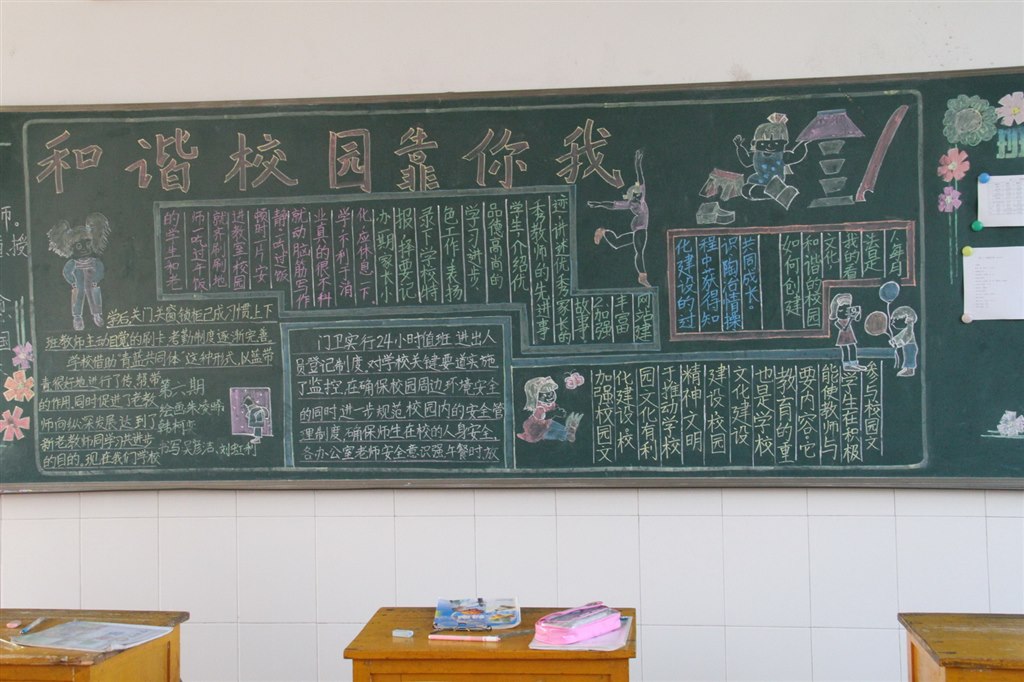 和谐校园靠你我
网站建
丰富
2加强
故事。
迹,讲述优秀家长的
秀教师的先进事
学生,介绍优
品德高尚的
学习进步,
色工作,表扬
录下学校特
报,择要记
办一期家长小
化,应休息一下
学,不利于消
业,真的很不科
就动脑筋写作
静。去过饭
顿时一片安
进教室,校园
就齐刷刷地
师一吃过午饭
的学生和老
今年9月
法是
我的看
文化
和谐的校园
如何创建
共同成长。
识、陶冶情操
程中获得知
化建设的过
学后关门、关窗、锁柜已成习惯上下
班教师主动自觉的刷卡,考勤制度逐渐完善
学校借助“青蓝共同体”这种形式,以蓝带
青很好地进行了传、帮、带
的作用,同时促进了老教
师向纵深发展,达到了
新老教师同学习共进步
的目的。现在我们学校
第六期
书写:吴慧洁、刘虹利
门卫实行24小时值班,进出人
员登记制度,对学校关键要道实施
了监控,在确保校园周边环境安全
的同时,进一步规范校园内的安全管
理制度,确保师生在校的人身安全
各办公室老师安全意识强,午餐时、放
参与校园文
学生在积极
能使教师与
要内容。吧
教育的重
也是学校
文化建设
建设校园
精神文明
于推动学校
园文化有利
化建设,校
加强校园文